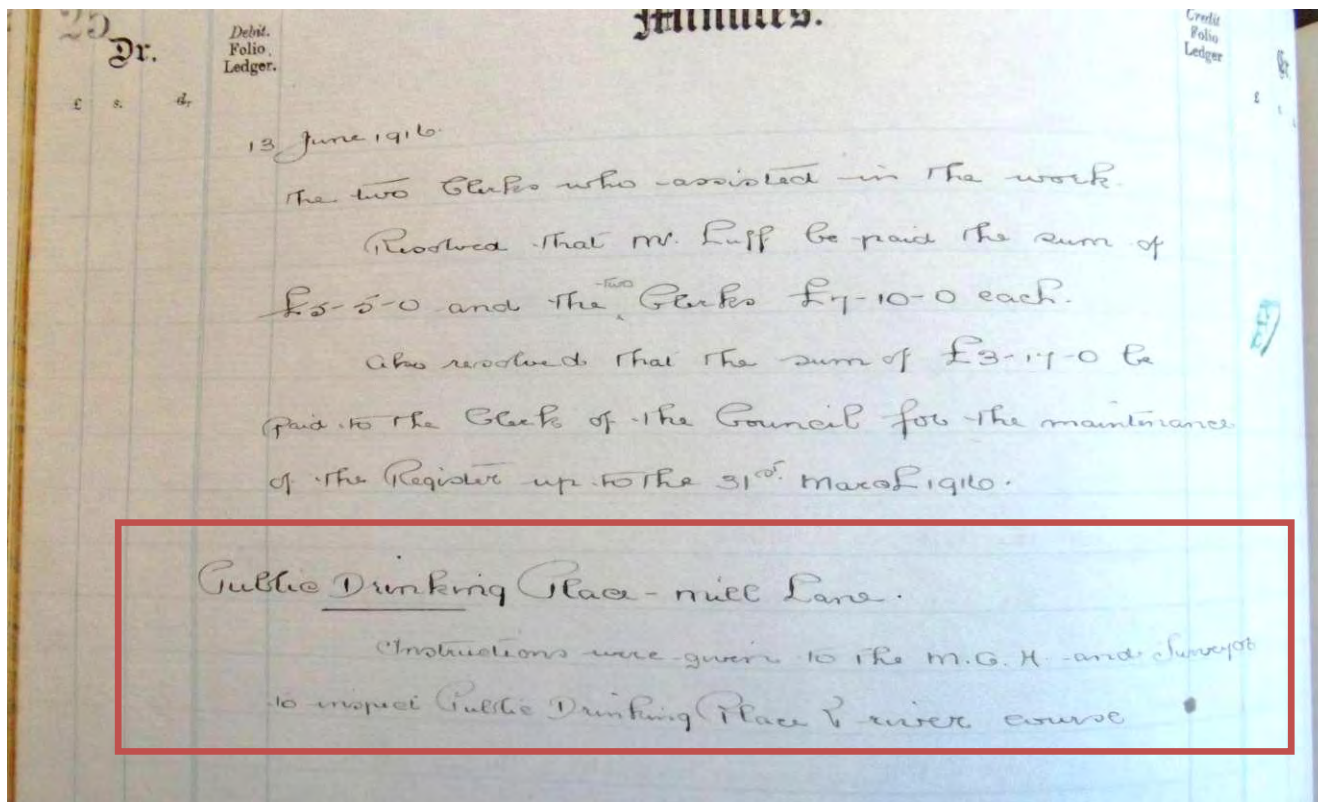 25
Minutes.
Dr.
Debit.
Folio.
Ledger.
Credit
Folio
Ledger
£ s. d.
£
13 June 1916.
The two Clerks who assisted in the work.
Resolved that Mr. Luff be paid the sum of
£5-5-0 and the two Clerks £7-10-0 each.
Also resolved that the sum of £3-17-0 be
paid to the Clerk of the Council for the maintenance
of the Register up to the 31st. March 1916.
Public Drinking Place - Mill Lane.
Instructions were given to the M.O.H. and Surveyor
to inspect Public Drinking Place & river course